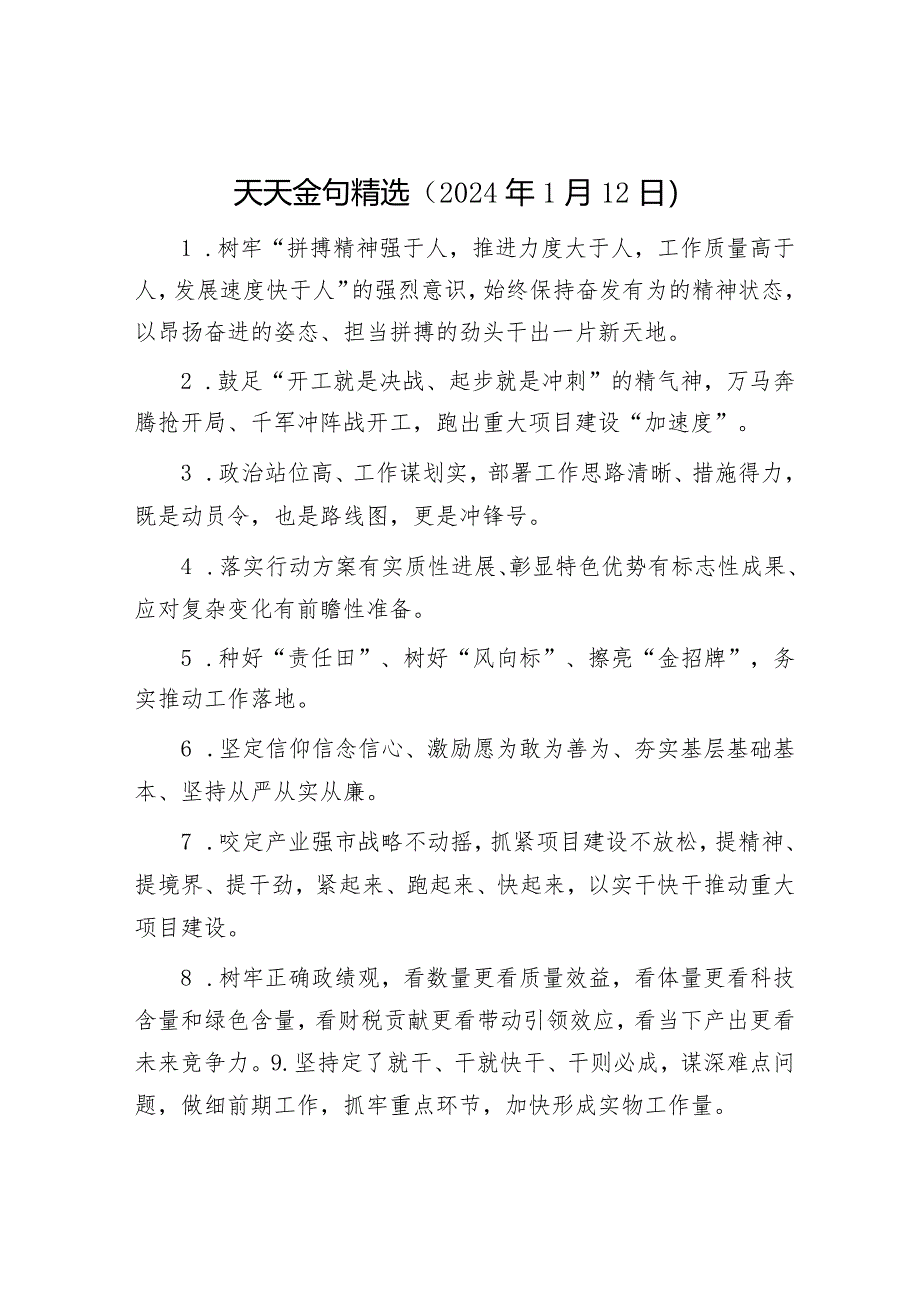 天天金句精选（2024 年 1 月 12 日）
1 .树牢“拼搏精神强于人，推进力度大于人，工作质量高于
人，发展速度快于人”的强烈意识，始终保持奋发有为的精神状态，
以昂扬奋进的姿态、担当拼搏的劲头干出一片新天地。
2 .鼓足“开工就是决战、起步就是冲刺”的精气神，万马奔
腾抢开局、千军冲阵战开工，跑出重大项目建设“加速度”。
3 .政治站位高、工作谋划实，部署工作思路清晰、措施得力，
既是动员令，也是路线图，更是冲锋号。
4 .落实行动方案有实质性进展、彰显特色优势有标志性成果、
应对复杂变化有前瞻性准备。
5 .种好“责任田”、树好“风向标”、擦亮“金招牌”，务
实推动工作落地。
6 .坚定信仰信念信心、激励愿为敢为善为、夯实基层基础基
本、坚持从严从实从廉。
7 .咬定产业强市战略不动摇，抓紧项目建设不放松，提精神、
提境界、提干劲，紧起来、跑起来、快起来，以实干快干推动重大
项目建设。
8 .树牢正确政绩观，看数量更看质量效益，看体量更看科技
含量和绿色含量，看财税贡献更看带动引领效应，看当下产出更看
未来竞争力。9.坚持定了就干、干就快干、干则必成，谋深难点问
题，做细前期工作，抓牢重点环节，加快形成实物工作量。